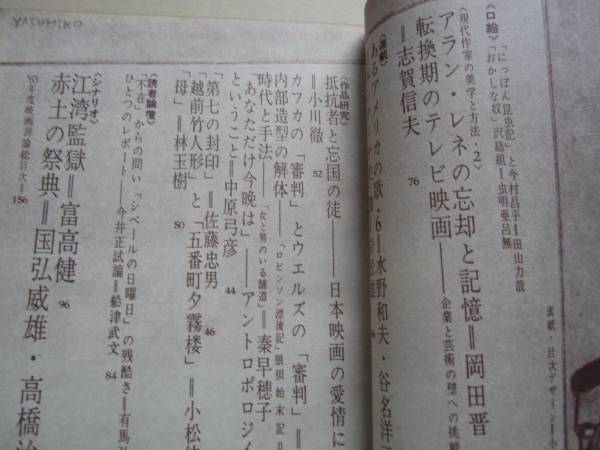 YASUMIKO
〈口絵〉
「にっぽん昆虫記」と今村昌平‖田山力哉
「おかしな奴」沢島組‖虫明亜呂無
〈現代作家の美学と方法・2〉
アラン・レネの忘却と記憶‖岡田晋
転換期のテレビ映画――企業と芸術の壁への挑戦
‖志賀信夫 76
〈連載〉
あるアメリカの歌・6‖水野和夫・谷名洋
〈作品研究〉
抵抗者と亡国の徒――日本映画の愛情に
‖小川徹 52
カフカの「審判」とウエルズの「審判」‖
内部造型の解体――「ロビンソン漂流記」
時代と手法――「女と男のいる舗道」‖秦早穂子
「あなただけ今晩は」――アントロポロジイ
ということ‖中原弓彦 44
「第七の封印」‖佐藤忠男 46
「越前竹人形」と「五番町夕霧楼」‖小松
「母」‖林玉樹 50
〈読者論壇〉
「不在」からの問い「シベールの日曜日」の残酷さ‖有馬
ひとつのレポート――今井正試論‖船津武文 84
〈シナリオ〉
江湾監獄‖富高健 96
赤土の祭典‖国弘威雄・高橋治
'63年度映画評論総目次‖156
表紙・目次デザイン‖小